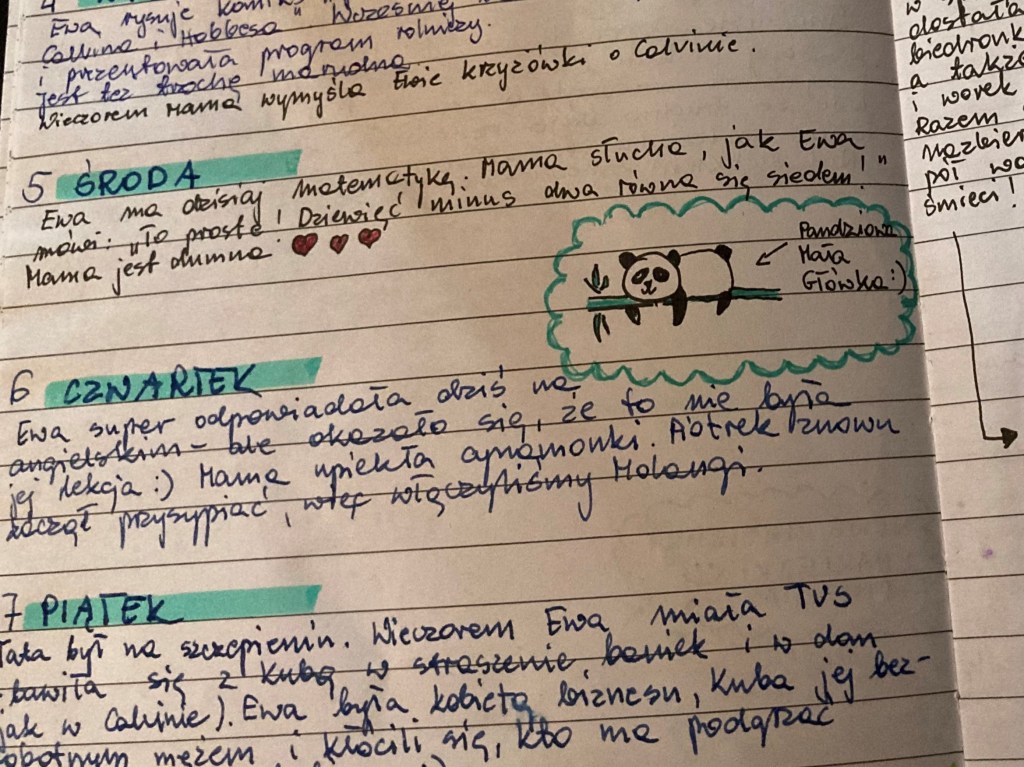 4
Ewa rysuje
Calvina i Hobbesa" Wcześniej
i prezentowała program rolniczy.
jest też trochę marudna
Wieczorem Mama wymyśla Ewie krzyżówki o Calvinie.
5 ŚRODA
Ewa ma dzisiaj matematykę. Mama słucha, jak Ewa
mówi: „To proste! Dziewięć minus dwa równa się siedem!"
Mama jest dumna
Pandziowa
Mała
Główka:)
6 CZWARTEK
Ewa super odpowiadała dziś na
angielskim – ale okazało się, że to nie była
jej lekcja :) Mama upiekła cynamonki. Abtrek znowu
zaczął przysypiać, więc włączyliśmy Molangi.
7 PIĄTEK
Tata był na szczepieniu. Wieczorem Ewa miała TUS
bawiła się z Kubą w straszenie baniek i w dom
jak w Calvinie). Ewa była kobietą biznesu, Kuba jej bez-
robotnym mężem i kłócili się, kto ma podgrzać
w
dostała
biedronk
a także
i worek
Razem
nazbier
pół wo
śmieci!